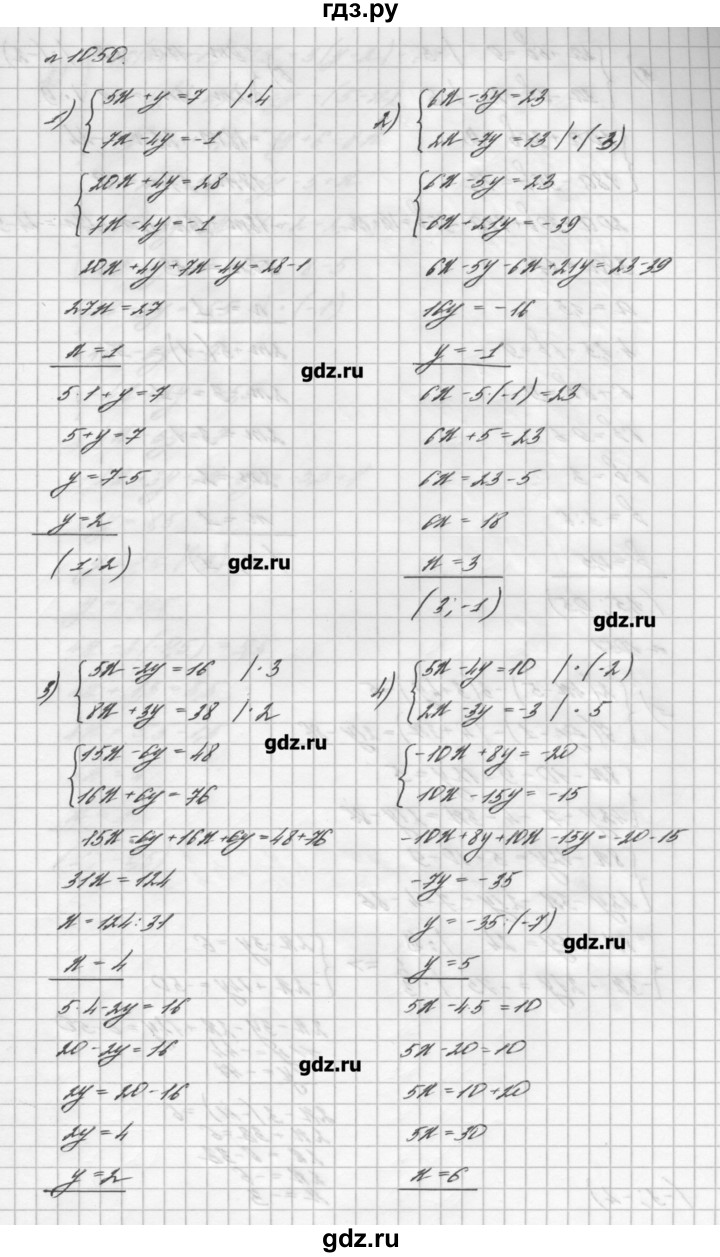 гдз.ру
№1050.
1) { 5x + y = 7 | · 4
7x - 4y = -1
{ 20x + 4y = 28
7x - 4y = -1
20x + 4y + 7x - 4y = 28 - 1
27x = 27
x = 1
5 · 1 + y = 7
5 + y = 7
y = 7 - 5
y = 2
(1; 2)
2) { 6x - 5y = 23
2x - 7y = 13 | · (-3)
{ 6x - 5y = 23
-6x + 21y = -39
6x - 5y - 6x + 21y = 23 - 39
16y = -16
y = -1
6x - 5 · (-1) = 23
6x + 5 = 23
6x = 23 - 5
6x = 18
x = 3
(3; -1)
gdz.ru
gdz.ru
gdz.ru
3) { 5x - 2y = 16 | · 3
8x + 3y = 38 | · 2
{ 15x - 6y = 48
16x + 6y = 76
15x - 6y + 16x + 6y = 48 + 76
31x = 124
x = 124 : 31
x = 4
5 · 4 - 2y = 16
20 - 2y = 16
2y = 20 - 16
2y = 4
y = 2
4) { 5x - 4y = 10 | · (-2)
2x - 3y = -3 | · 5
{ -10x + 8y = -20
10x - 15y = -15
-10x + 8y + 10x - 15y = -20 - 15
-7y = -35
y = -35 : (-7)
y = 5
5x - 4 · 5 = 10
5x - 20 = 10
5x = 10 + 20
5x = 30
x = 6
gdz.ru
gdz.ru
gdz.ru
gdz.ru